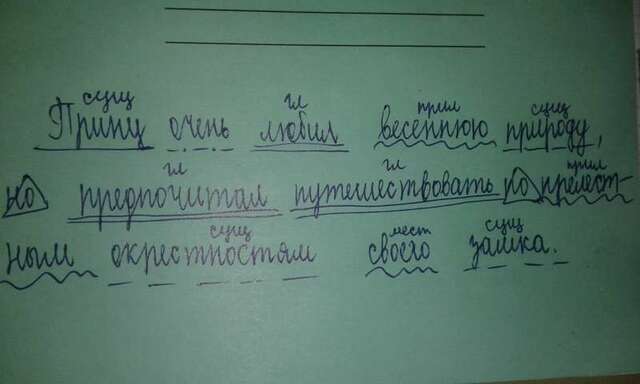 сущ гл прил сущ
Принц очень любил весеннюю природу,
гл гл прил
но предпочитал путешествовать по прелест-
сущ мест сущ
ным окрестностям своего замка.